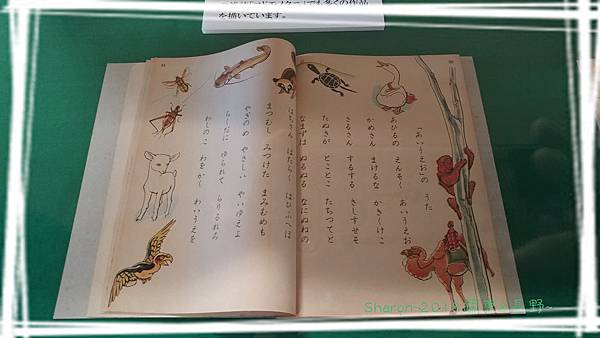 でも多くの作品
を描いています。
「あいうえお」の うた
あひるの えんそく あいうえお
かめさん まけるな かきくけこ
さるさん するする さしすせそ
たぬきが とことこ たちつてと
なまずは ぬるぬる なにぬねの
はちさん はたらく はひふへほ
まつむし みつけた まみむめも
やぎのめ やさしい やいゆえよ
らくだに ゆられて らりるれろ
わしのこ わをかく わいうえを
Sharon~
長野~